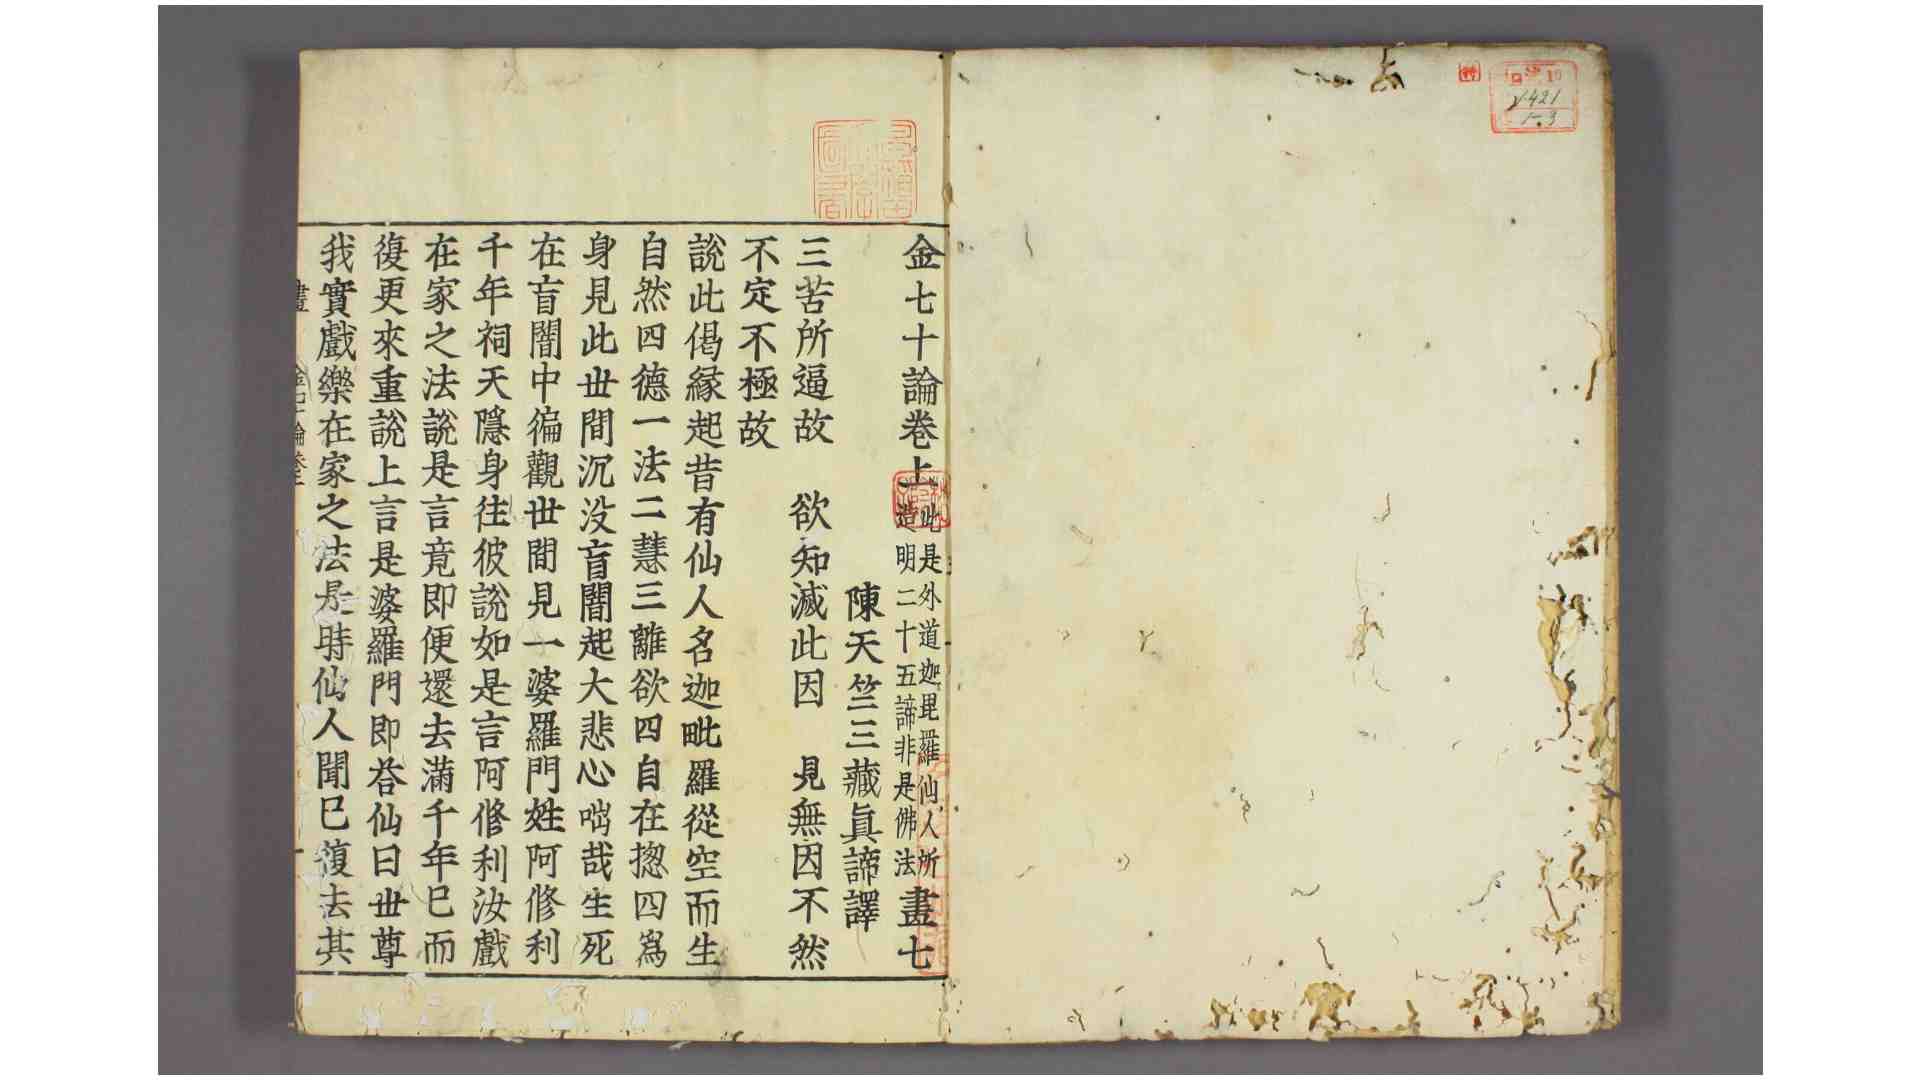 金七十論卷上 此是外道迦毘羅仙人所 畫七
造明二十五諦非是佛法
陳天竺三藏眞諦譯
三苦所逼故 欲知滅此因 見無因不然
不定不極故
說此偈緣起昔有仙人名迦毗羅從空而生
自然四德一法二慧三離欲四自在揔四爲
身見此丗間沉没盲闇起大悲心咄哉生死
在盲闇中徧觀丗間見一婆羅門姓阿修利
千年祠天隱身往彼說如是言阿修利汝戲
在家之法說是言竟即便還去滿千年已而
復更來重說上言是婆羅門即荅仙曰丗尊
我實戲樂在家之法是時仙人聞已復去其
畫 金七十論卷上 一
γ421
1-3